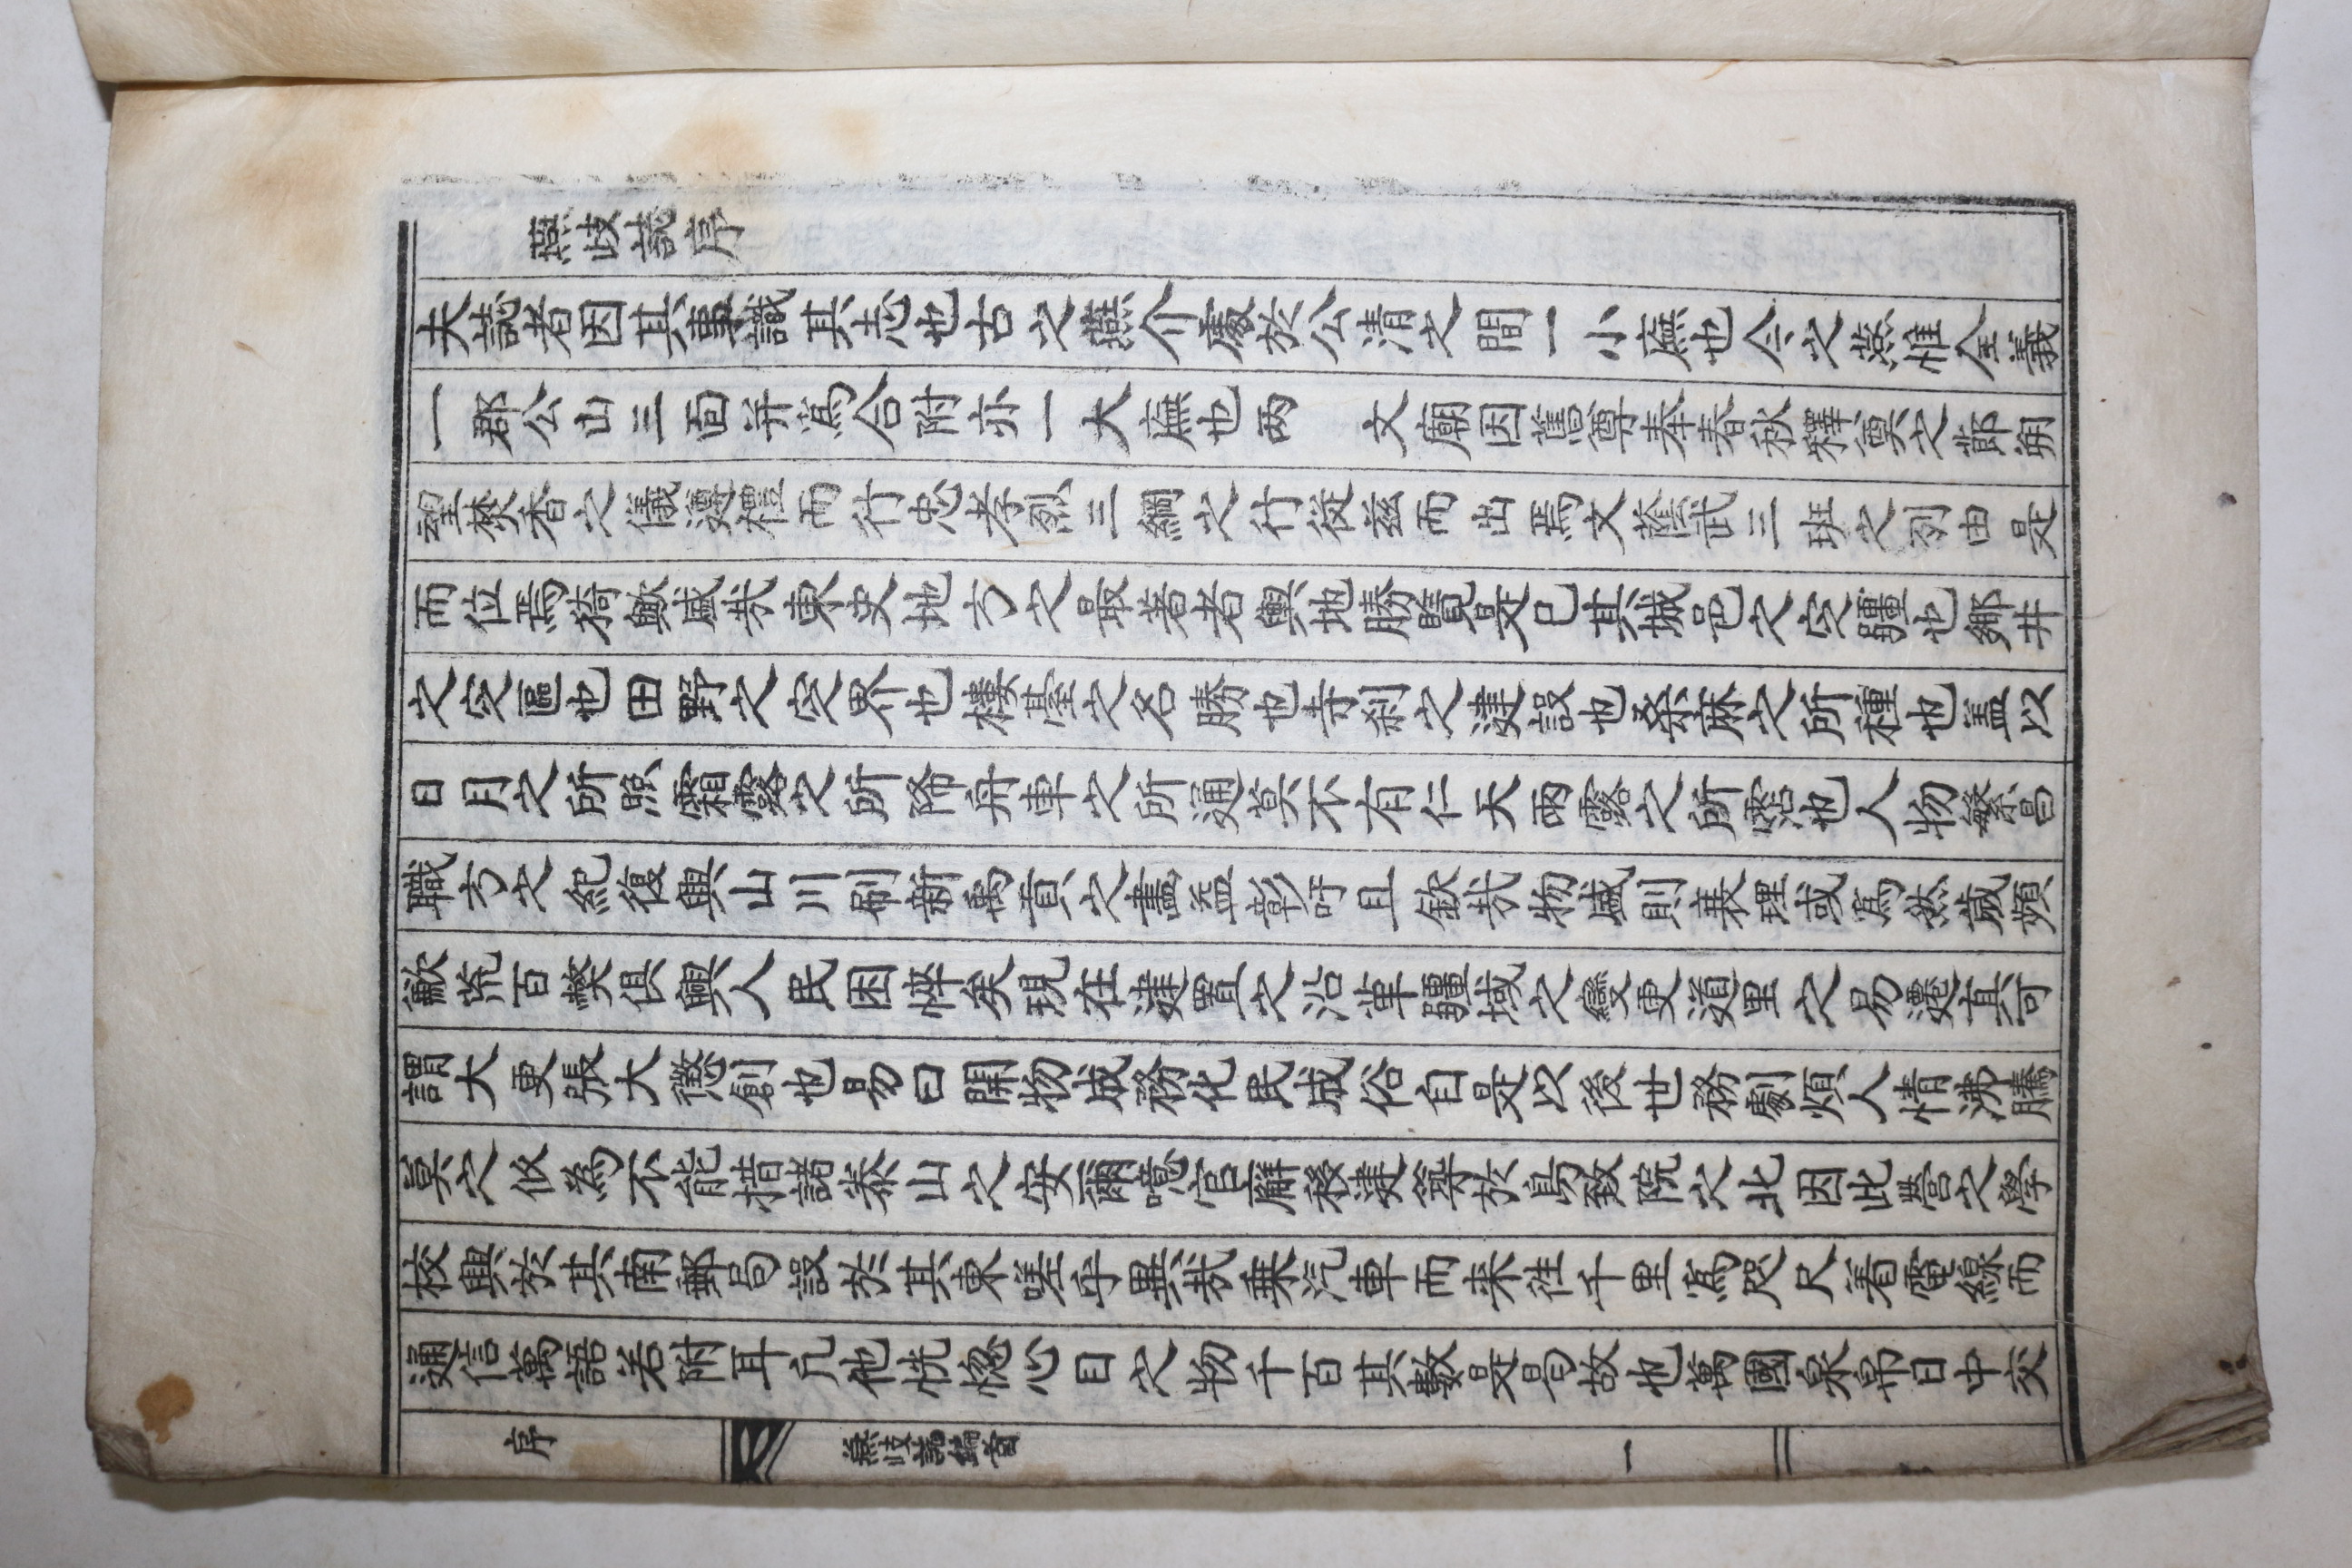 燕岐誌序
夫誌者因其事識其志也古之燕介處於公清之間一小廡也今之燕惟全義
一郡公山三面幷爲合附亦一大廡也兩 文廟因舊尊奉春秋釋奠之節朔
望焚香之儀遵禮而行忠孝烈三綱之行從玆而出焉文蔭武三班之列由是
而位焉猗歟盛哉東史地方之最著者輿地勝覽是已其城邑之定疆也鄉井
之定區也田野之定界也樓臺之名勝也寺刹之建設也桑麻之所種也盖以
日月之所照霜露之所降舟車之所通莫不有仁天雨露之所霑也人物繁昌
職方之紀復興山川刷新禹貢之畵益彰吁且欽哉物盛則衰理或爲然歲頻
歉荒百弊俱興人民困悴矣現在建置之沿革疆域之變更道里之易遷眞可
謂大更張大懲創也易曰開物成務化民成俗自是以後世務劇煩人情沸騰
莫之攸爲不能措諸泰山之安爾噫官廨移建等於鳥致院之北因此營之學
校興於其南郵局設於其東嗟乎異哉乘汽車而来往千里爲咫尺着電線而
通信萬語若附耳凡他恍惚心目之物千百其數是曷故也萬國泉帛日中交
序 燕岐誌編首 一